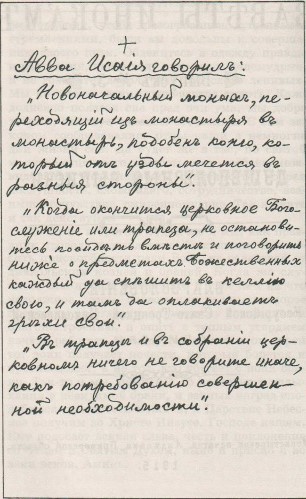 Авва Исаія говорилъ:
„Новоначальный монахъ, пе-
реходящій изъ монастыря въ
монастырь, подобенъ коню, ко-
торый отъ узды мечется въ
разныя стороны".
„Когда окончится церковное Бого-
служеніе или трапеза, не останови-
тесь посидѣть вмѣстѣ и поговорить
ниже о предметахъ Божественныхъ
каждый да спѣшитъ въ келлію
свою, и тамъ да оплакиваетъ
грѣхи свои".
„Въ трапезѣ и въ собраніи цер-
ковномъ ничего не говорите иначе,
какъ по требованію совершен-
ной необходимости".